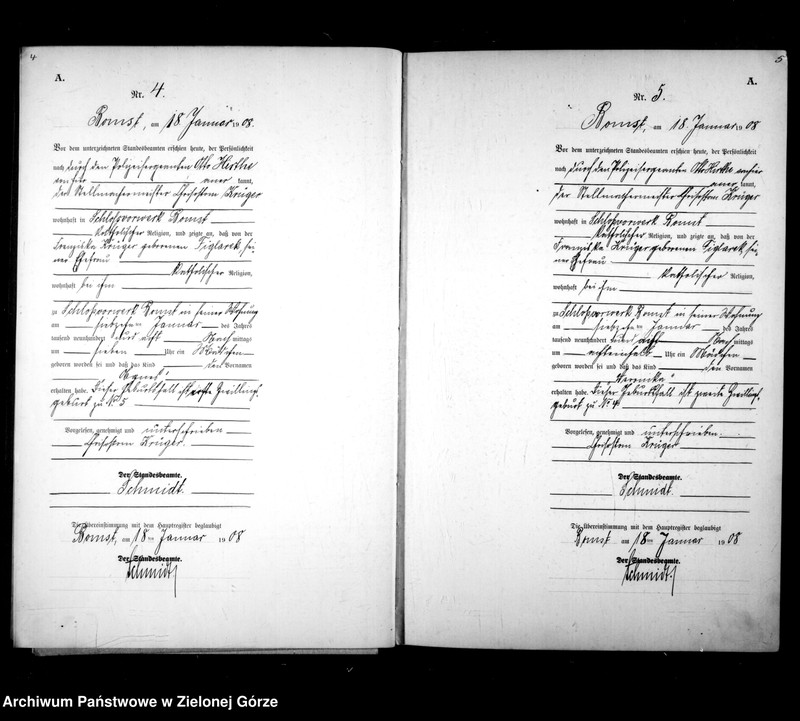 4
A.
Nr. 4.
Bomst, am 18 Januar 1908.
Vor dem unterzeichneten Standesbeamten erschien heute, der Persönlichkeit
nach durch den Polizeisergeanten Otto
kannt,
der Stellmachermeister Chrisostom Krüger
wohnhaft in Schloßvorwerk Bomst
katholischer Religion, und zeigte an, daß von der
Franziska Krüger geborenen Ziglarek sei-
ner Ehefrau
katholischer Religion,
wohnhaft bei ihm
zu Schloßvorwerk Bomst in seiner Wohnung
am siebzehn Januar des Jahres
tausend neunhundert und acht Nach mittags
um sieben Uhr ein Mädchen
geboren worden sei und daß das Kind den Vornamen
Agnes
erhalten habe. Dieser Geburtsfall ist erste Zwillings-
geburt zu No 5
Vorgelesen, genehmigt und unterschrieben
Chrisostom Krüger.
Der Standesbeamte.
Schmidt.
Die Übereinstimmung mit dem Hauptregister beglaubigt
Bomst, am 18ten Januar 1908
Der Standesbeamte.
Schmidt
5
A.
Nr. 5.
Bomst, am 18. Januar 1908
Vor dem unterzeichneten Standesbeamten erschien heute, der Persönlichkeit
nach durch den Polizeisergeanten Otto
kannt,
der Stellmachermeister Chrisostom Krüger
wohnhaft in Schloßvorwerk Bomst
katholischer Religion, und zeigte an, daß von der
Franziska Krüger geborenen Ziglarek sei-
ner Ehefrau
katholischer Religion,
wohnhaft bei ihm
zu Schloßvorwerk Bomst in seiner Wohnung
am siebzehn Januar des Jahres
tausend neunhundert und acht Nach mittags
um achteinhalb Uhr ein Mädchen
geboren worden sei und daß das Kind den Vornamen
Veronika
erhalten habe. Dieser Geburtsfall ist zweite Zwillings-
geburt zu No 4
Vorgelesen, genehmigt und unterschrieben.
Chrisostom Krüger
Der Standesbeamte.
Schmidt.
Die Übereinstimmung mit dem Hauptregister beglaubigt
Bomst am 18ten Januar 1908
Der Standesbeamte.
Schmidt.
Archiwum Państwowe w Zielonej Górze